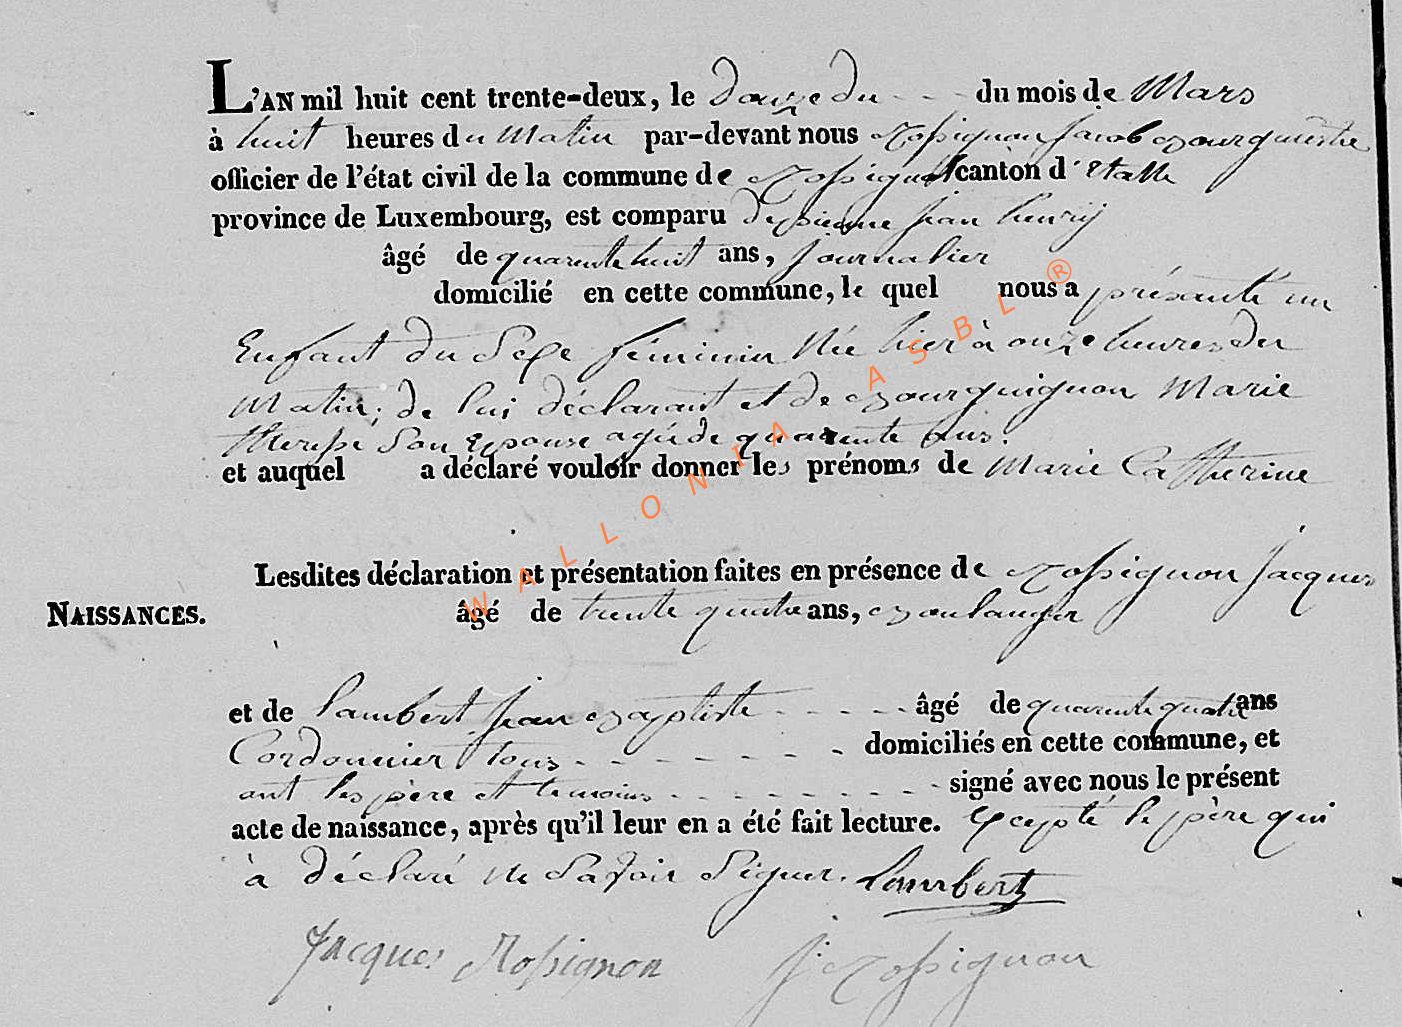 L'AN mil huit cent trente-deux, le douze du - - - du mois de Mars
à huit heures du Matin par-devant nous Rossignon Jacob Bourguemestre
officier de l'état civil de la commune de Rossignol canton d'Etalle
province de Luxembourg, est comparu Depienne Jean henry
âgé de quarente huit ans, Journalier
domicilié en cette commune, le quel nous a présenté un
Enfant du Sexe féminin Née hier à onze heures du
Matin, de lui déclarant et de Bourguignon Marie
therese Son Epouse agée de quarente ans.
et auquel a déclaré vouloir donner les prénoms de Marie Catherine
Lesdites déclaration et présentation faites en présence de Rossignon Jacques
NAISSANCES. âgé de trente quatre ans, Boulanger
et de Lambert Jean Baptiste - - - - - âgé de quarente quatre ans
Cordonnier tous - - - - - - - domiciliés en cette commune, et
ont les père et temoins - - - - - - - - - signé avec nous le présent
acte de naissance, après qu'il leur en a été fait lecture. Excepté le père qui
à déclaré ne Savoir Signer. Lambert
Jacques Rossignon J. Rossignon
WALLONIA ASBL ®